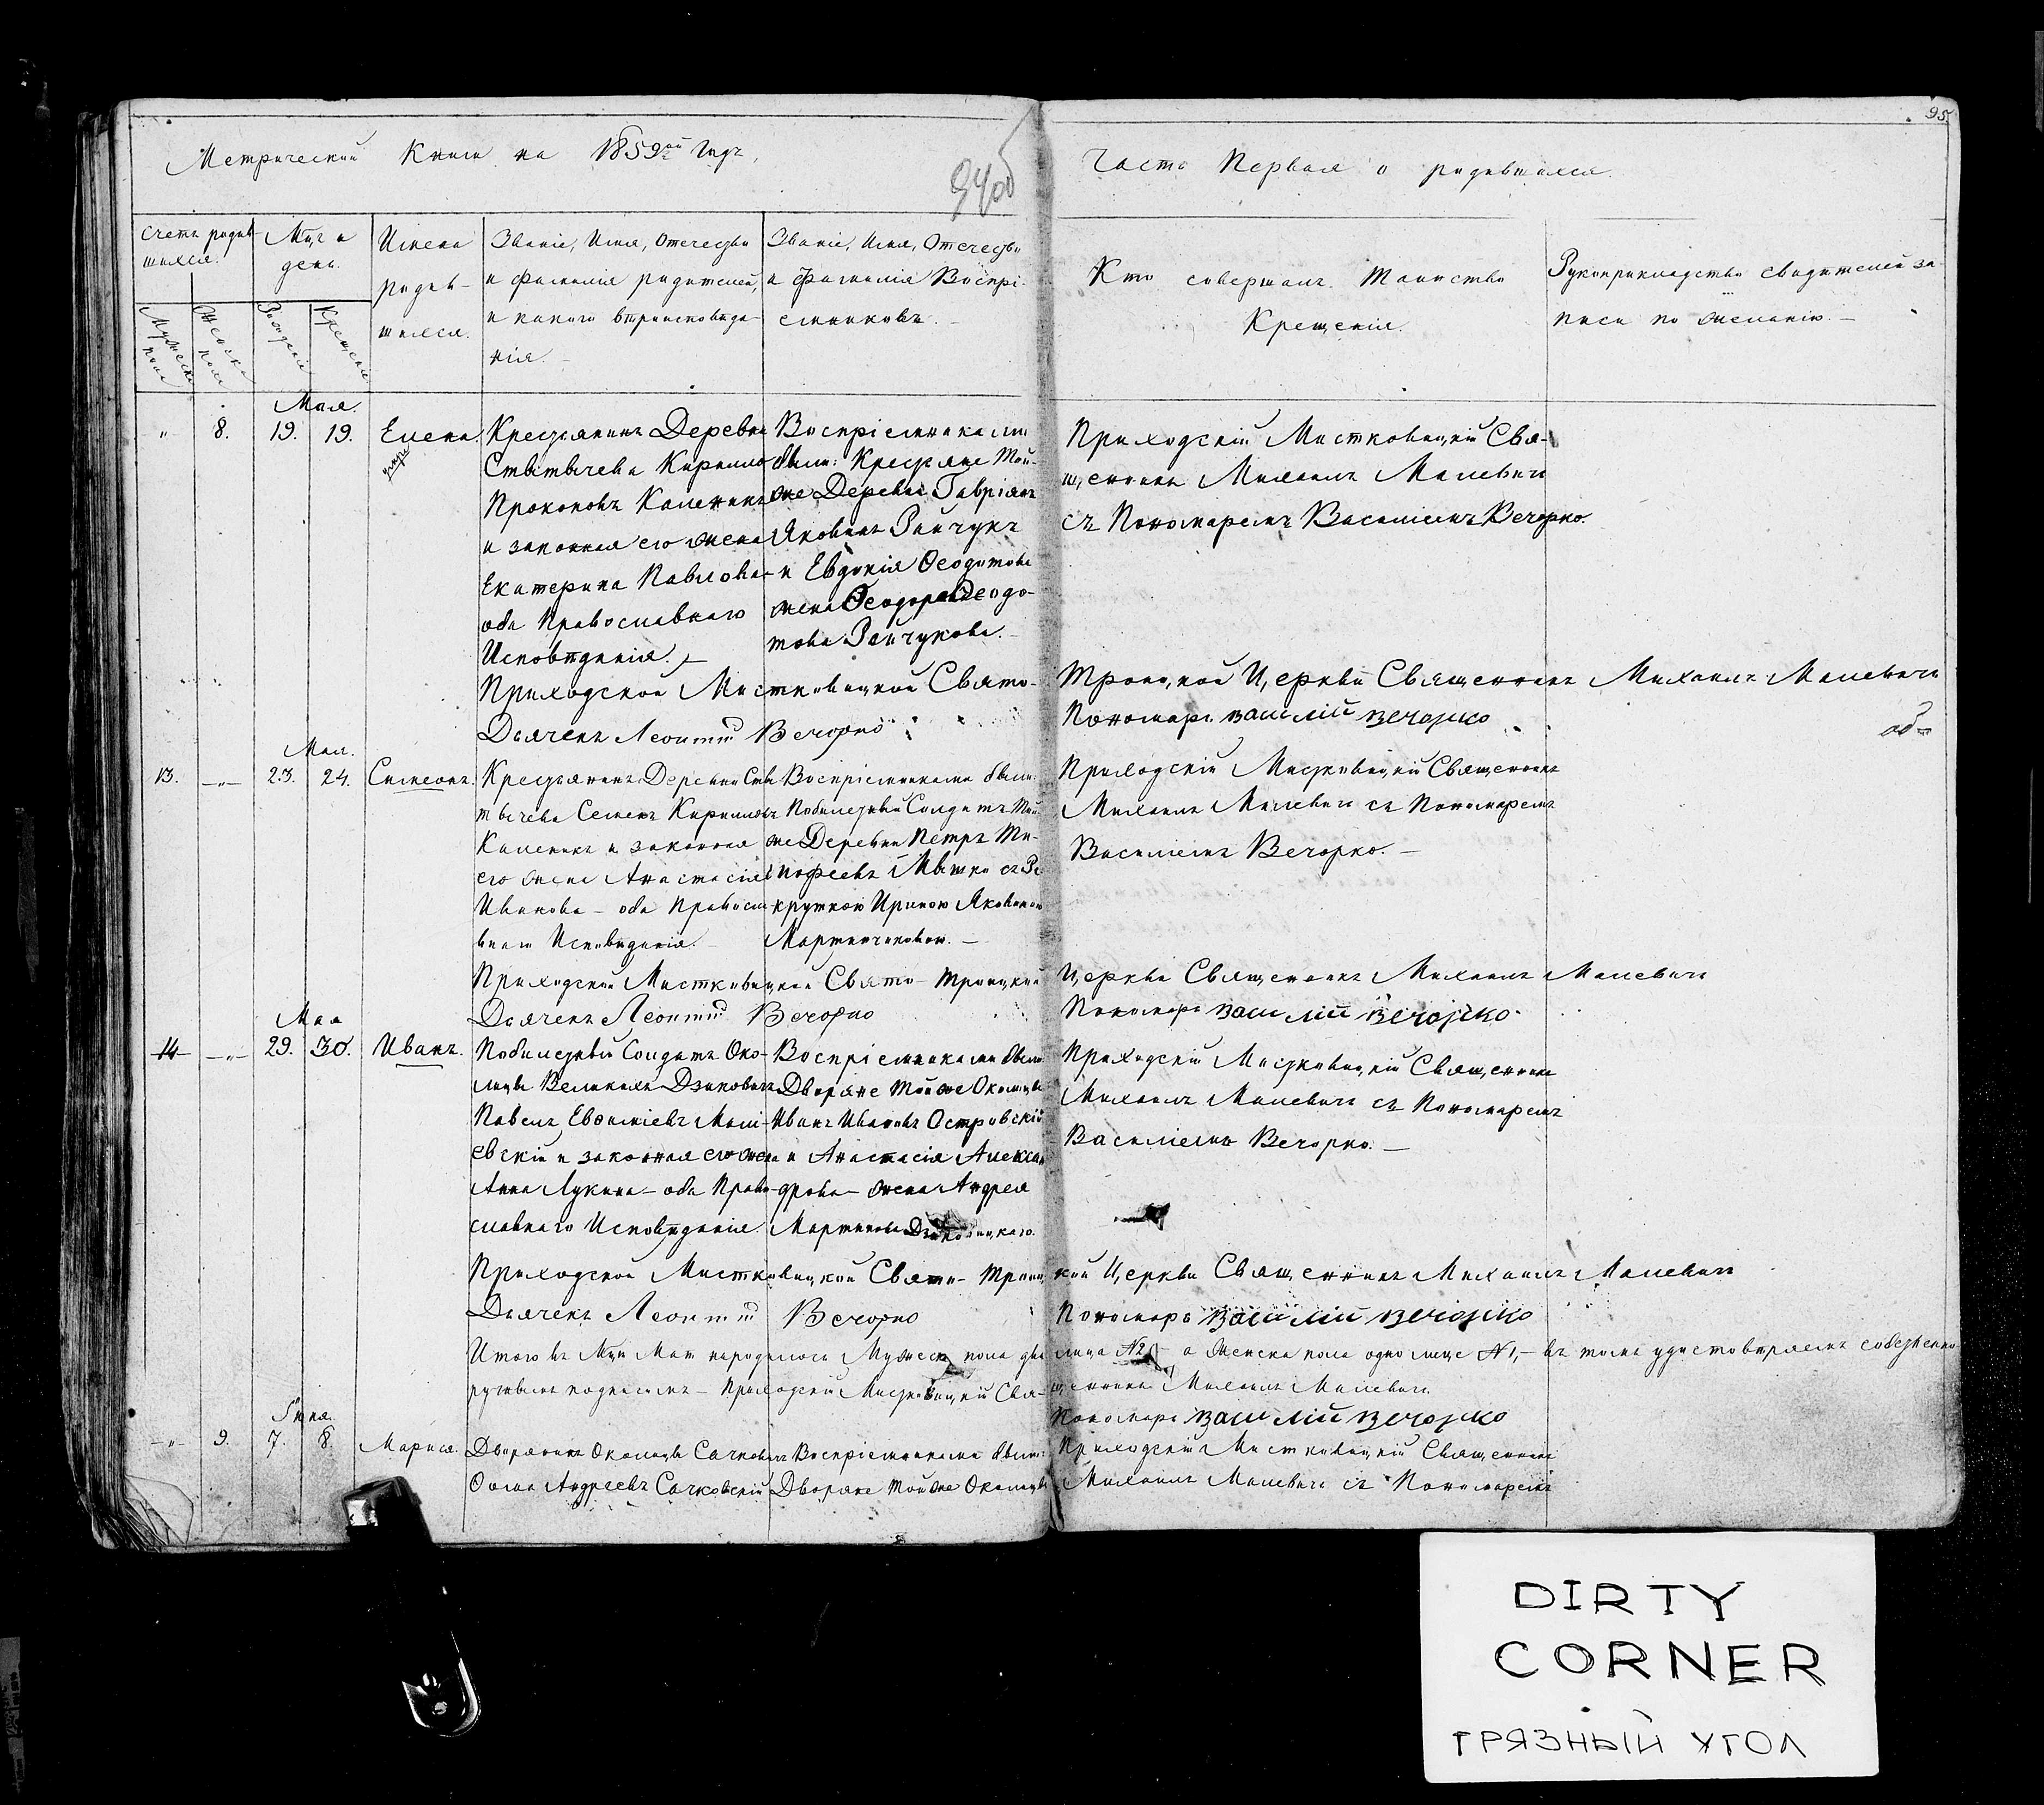 Метрической Книги на 1859ый Годъ,
94об
Часть Первая о родившихся.
95
Счетъ родив-
шихся.
Мужеска
пола
Женска
пола
Мцъ и
день.
Рожденія
Крещенія
Имена
родив-
шихся.
Званіе, Имя, Отечество
и фамилія родителей,
и какого вѣроисповѣда-
нія.
Званіе, Имя, Отечество
и фамилія Воспрі-
емниковъ.
Кто совершалъ Таинство
Крещенія.
Рукоприкладство свидѣтелей за
писи по желанію.
Мая.
" 8. 19. 19. Елена
Крестьянинъ Деревни
Кирилло
Прокоповъ Каленикъ
и законная его жена
Екатерина Павлова
оба Православнаго
Исповѣданія.
Воспріемниками
были: Крестьяне Той-
же Деревни Гавріилъ
Яковлевъ Зайчукъ
и Евдокія Ѳеодотова
жена Ѳеодора Ѳеодо-
това Зайчукова.
Приходскій Мистковицкій Свя-
щенникъ Михаилъ Малевичъ
съ Пономаремъ Василіемъ Вечорко.
Приходской Мистковицкой Свято-
Троицкой Церкви Священникъ Михаилъ Малевичъ
Дьячекъ Леонтій Вечорко
Пономарь Василій Вечорко
об-
Мая.
13. -"- 23. 24. Симеонъ.
Крестьянинъ Деревни Сты
тычева Семенъ Кирилловъ
Каленикъ и законная
его жена Анастасія
Иванова - оба Правосла
внаго Исповѣданія.
Воспріемниками были:
Побилетный Солдатъ Той-
же Деревни Петръ Ти-
мофеевъ Мышко съ Ре
круткою Ириною Яковлевою
Мартинчиковою.
Приходскій Мистковицкій Священникъ
Михаилъ Малевичъ съ Пономаремъ
Василіемъ Вечорко.
Приходской Мистковицкой Свято-Троицкой
Церкви Священникъ Михаилъ Малевичъ
Дьячекъ Леонтій Вечорко
Пономарь Василій Вечорко.
Мая
14 -"- 29. 30. Иванъ.
Побилетный Солдатъ Око-
лицы Великихъ Дзиковичъ
Павелъ Евѳиміевъ Мали-
евскій и законная его жена
Анна Лукина - оба Право-
славнаго Исповѣданія.
Воспріемниками были
Дворяне Той же Околицы
Иванъ Ивановъ Островскій
и Анастасія Алексан
дрова - жена Андрея
Мартинова Дзиковицкаго.
Приходскій Мистковицкій Священникъ
Михаилъ Малевичъ съ Пономаремъ
Василіемъ Вечорко.
Приходской Мистковицкой Свято-Троиц
кой Церкви Священникъ Михаилъ Малевичъ
Дьячекъ Леонтій Вечорко
Пономарь Василій Вечорко
Итого въ Мцѣ Маѣ народилось Мужеск пола два лица №2, а Женска пола одно лице №1, - въ томъ удостовѣряемъ собственно
ручнымъ подписомъ - Приходскій Мистковицкій Свя-щенникъ Михаилъ Малевичъ.
Пономарь Василій Вечорко
Іюня.
-"- 9. 7. 8. Марія.
Дворянинъ Околицы Сачковичъ
Ѳома Андреевъ Сачковскій
Воспріемниками были:
Дворяне Той же Околицы
Приходскій Мистковицкій Священникъ
Михаилъ Малевичъ съ Пономаремъ
DIRTY
CORNER
ГРЯЗНЫЙ УГОЛ